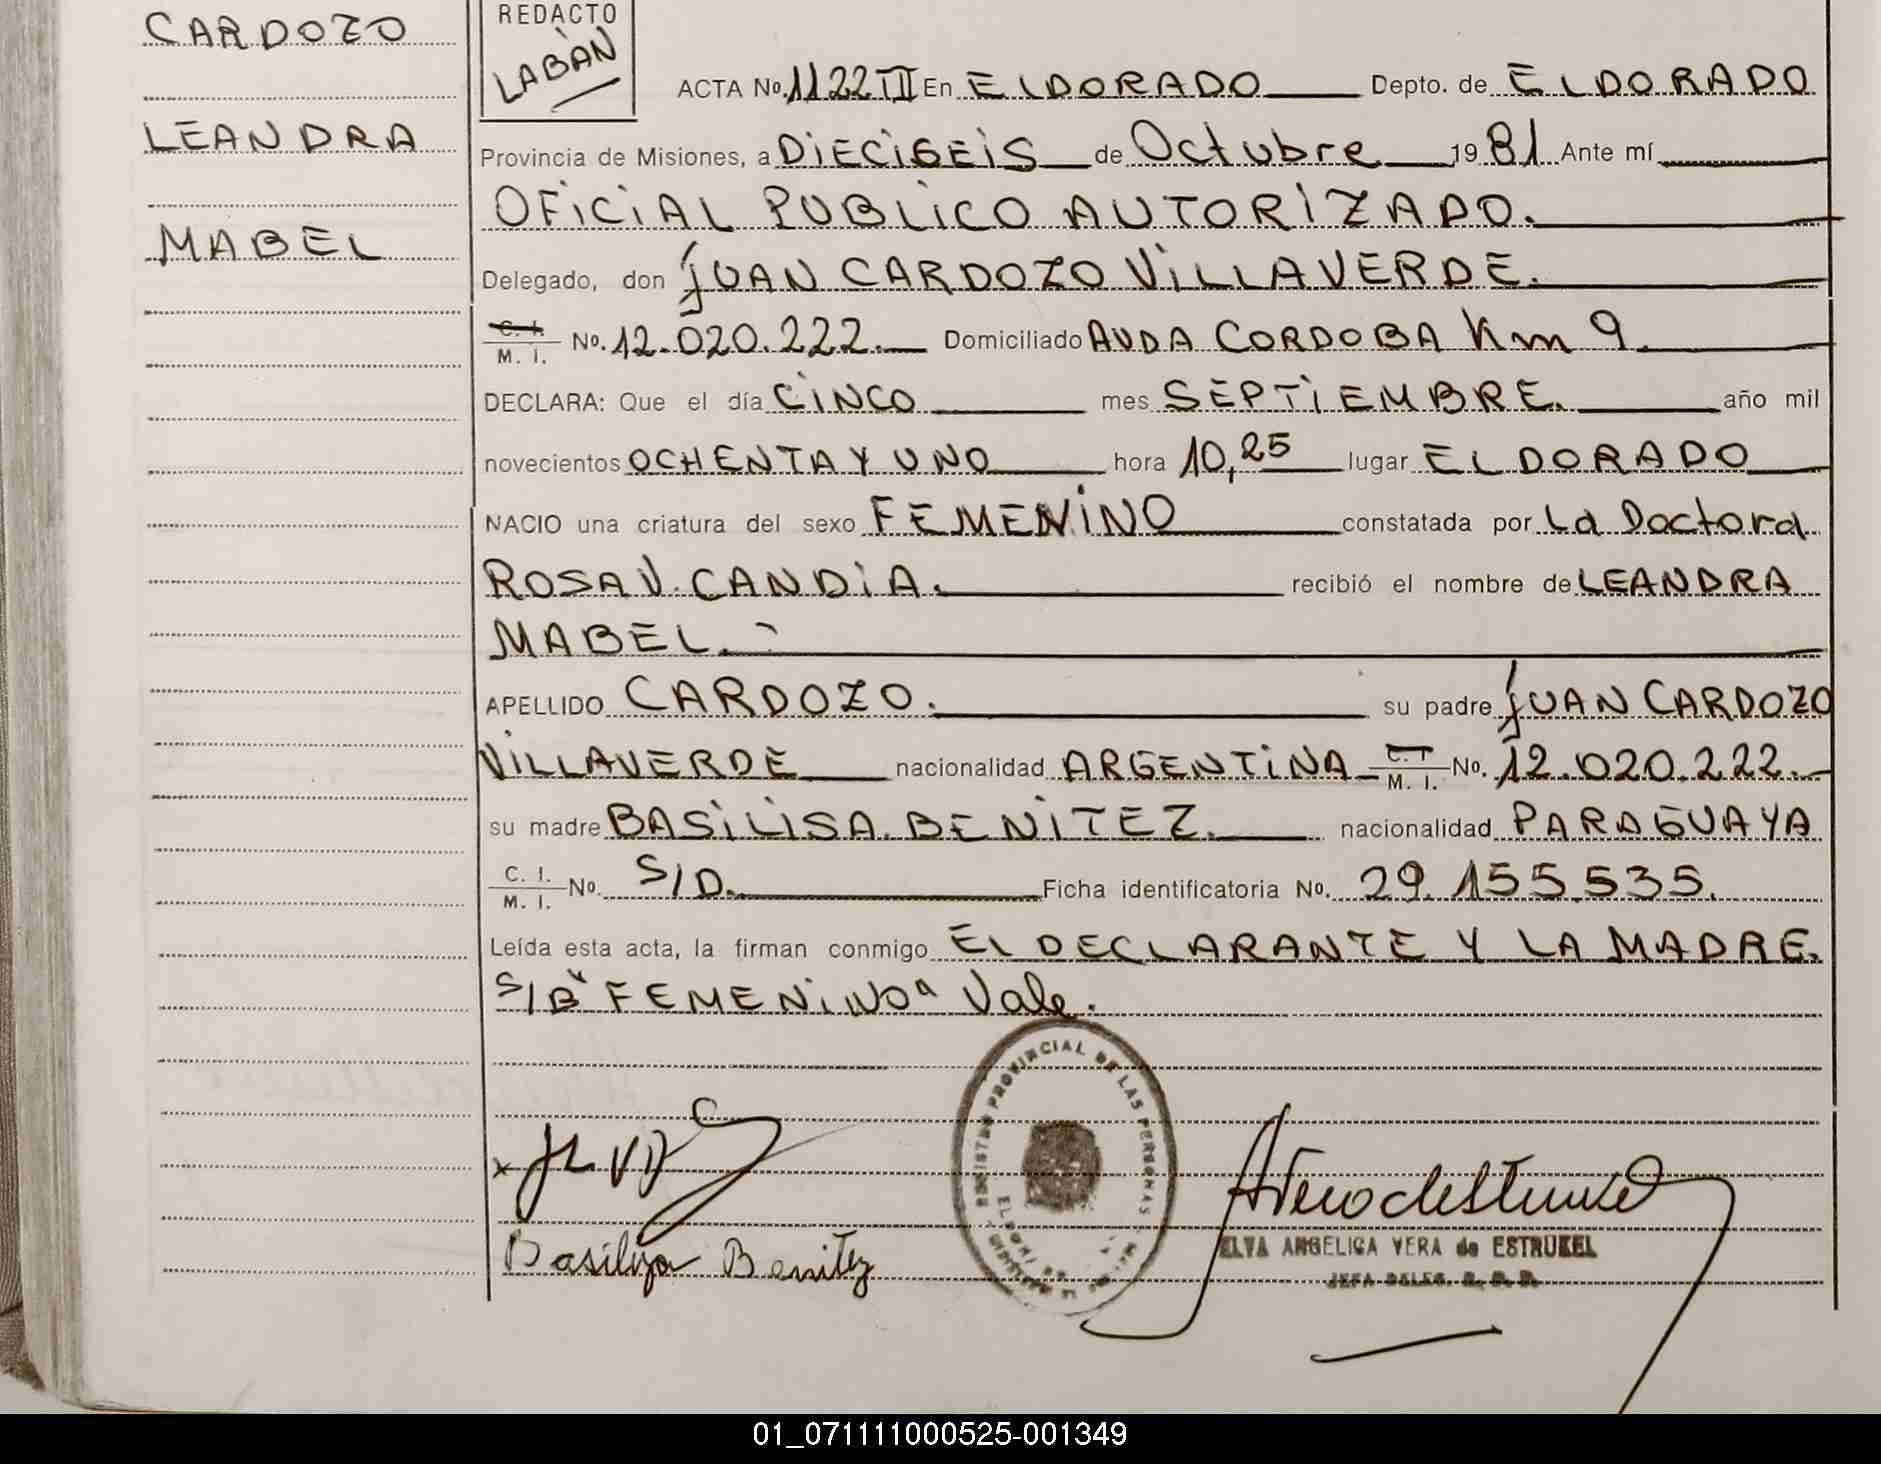 CARDOZO
LEANDRA
MABEL
REDACTO
LABÀN
ACTA No. 1122 III En ELDORADO Depto. de ELDORADO
Provincia de Misiones, a DIECISEIS de Octubre 1981 Ante mí
OFICIAL PUBLICO AUTORIZADO.
Delegado, don JUAN CARDOZO VILLAVERDE.
C. I.
M. I. No. 12.020.222. Domiciliado AVDA CORDOBA Km 9.
DECLARA: Que el día CINCO mes SEPTIEMBRE. año mil
novecientos OCHENTA Y UNO hora 10,25 lugar ELDORADO
NACIO una criatura del sexo FEMENINO constatada por La Doctora
ROSA V. CANDIA. recibió el nombre de LEANDRA
MABEL.
APELLIDO CARDOZO. su padre JUAN CARDOZO
VILLAVERDE nacionalidad ARGENTINA C. I. M. I. No. 12.020.222.
su madre BASILISA BENITEZ. nacionalidad PARAGUAYA
C. I.
M. I. No. S/D. Ficha identificatoria No. 29.155.535.
Leída esta acta, la firman conmigo EL DECLARANTE Y LA MADRE.
S/B "FEMENINO" Vale.
REGISTRO PROVINCIAL DE LAS PERSONAS
Basiliza Benitez
ELVA ANGELICA VERA de ESTRUKEL
JEFA DELEG. R. P. P.
01_071111000525-001349